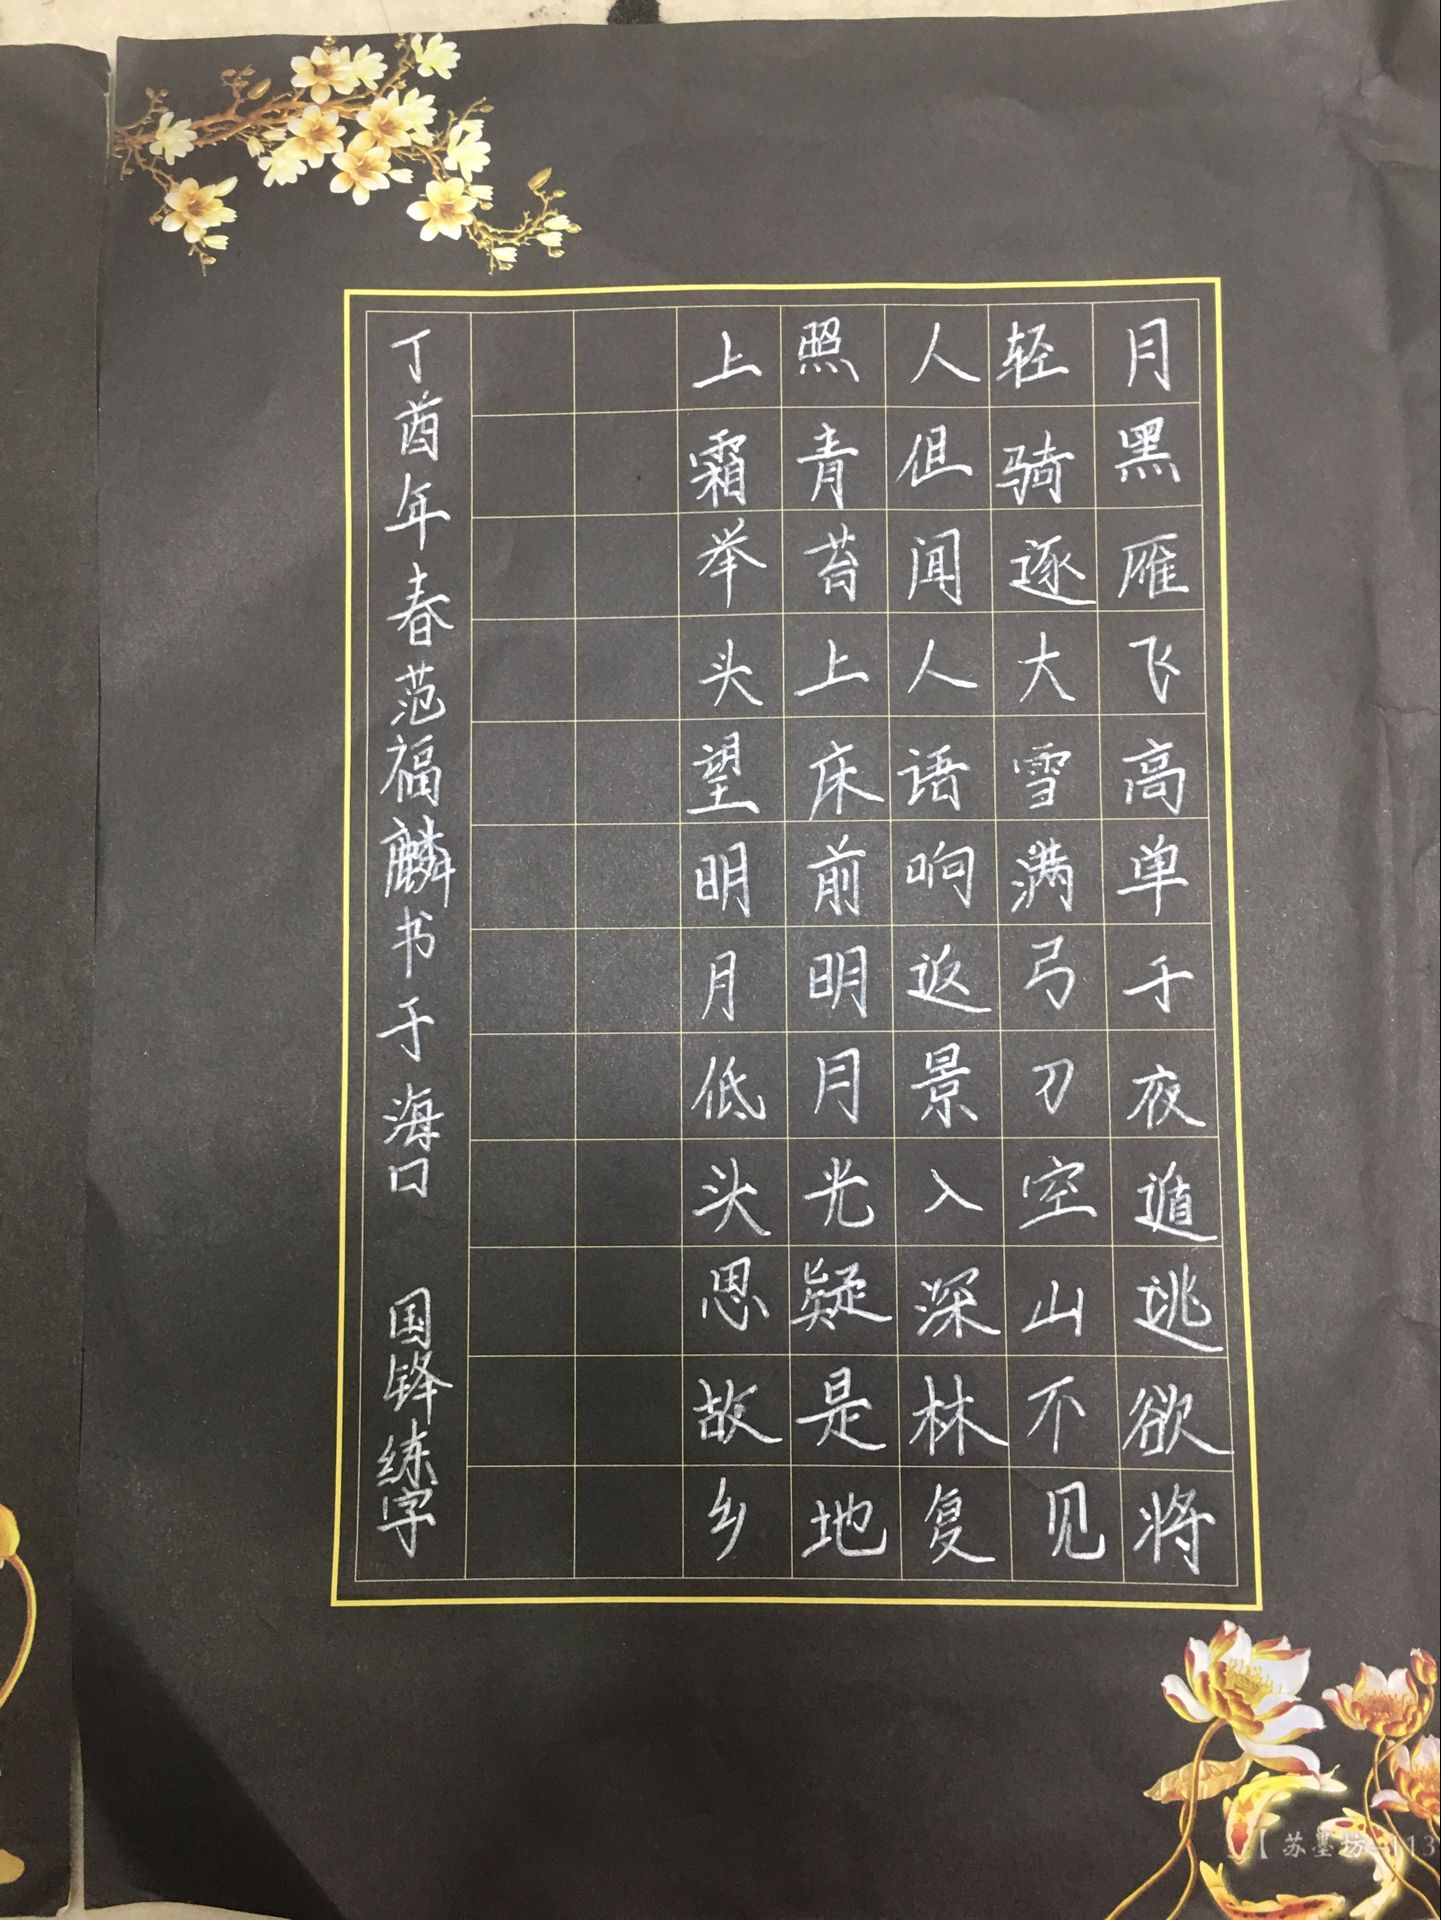 月黑雁飞高单于夜遁逃欲将
轻骑逐大雪满弓刀空山不见
人但闻人语响返景入深林复
照青苔上床前明月光疑是地
上霜举头望明月低头思故乡
丁酉年春范福麟书于海口 国锋练字
【苏墨坊-113